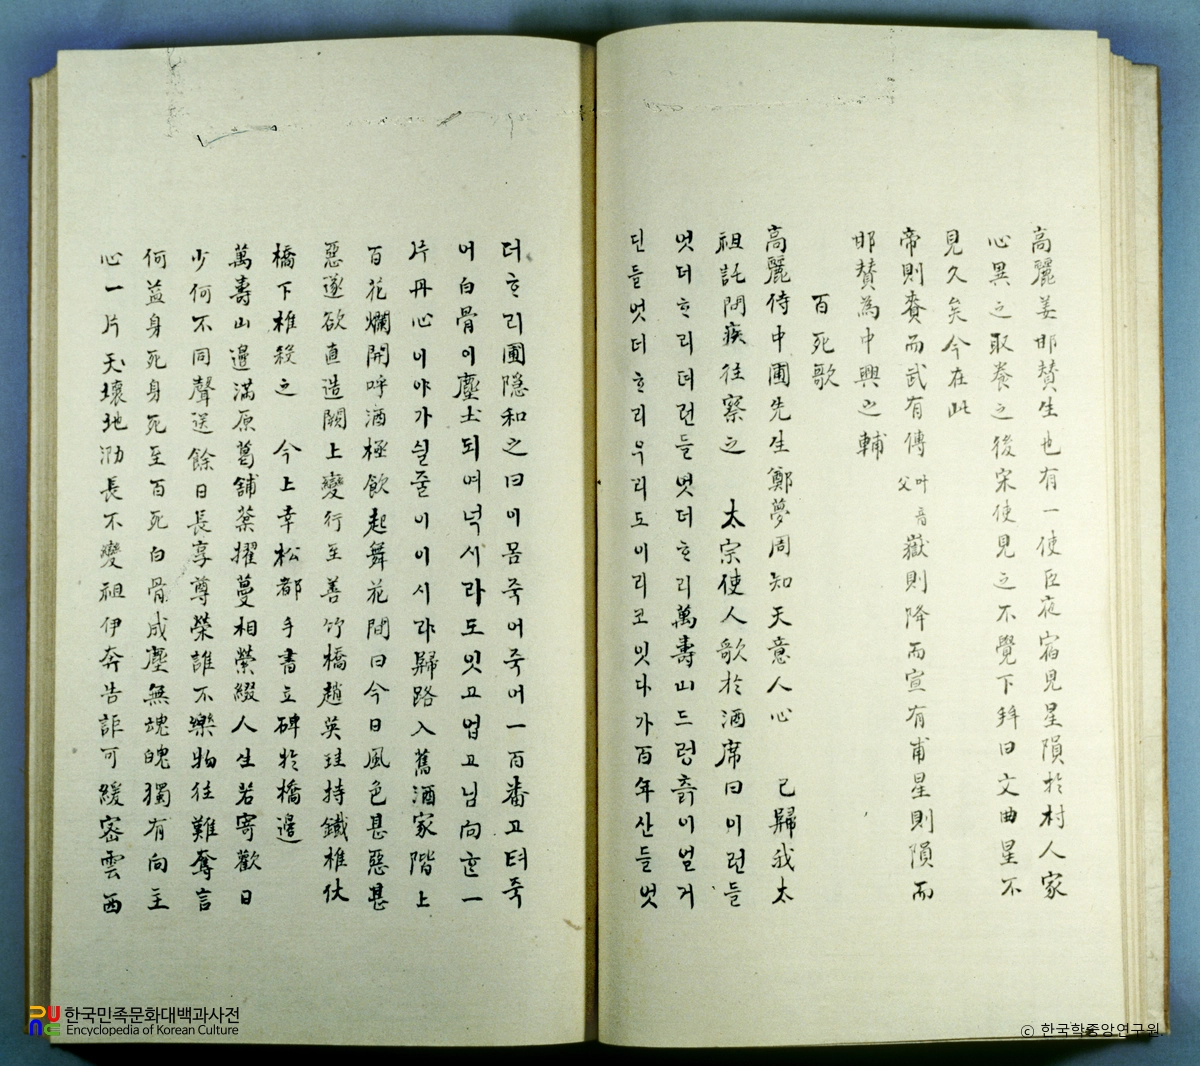 高麗姜邯贊生也有一使臣夜宿見星隕於村人家
心異之取養之後宋使見之不覺下拜曰文曲星不
見久矣今在此
帝則賚而武有傅父叶音嶽則降而宣有甫星則隕而
邯贊為中興之輔
百死歌
高麗侍中圃先生鄭夢周知天意人心 已歸我太
祖託問疾往察之 太宗使人歌於酒席曰이런들
엇더ᄒᆞ리더런들엇더ᄒᆞ리萬壽山드렁츩이얼거
딘들엇더ᄒᆞ리우리도이리코잇다가百年산들엇
더ᄒᆞ리圃隐和之曰이몸죽어죽어一百番고텨죽
어白骨이塵土되여넉시라도잇고업고님向ᄒᆞᆫ一
片丹心이야가싈줄이이시랴歸路入舊酒家階上
百花爛開呼酒極飮起舞花間曰今日風色甚惡甚
惡遂欲直造闕上變行至善竹橋趙英珪持鐵椎伏
橋下椎殺之 今上幸松都手書立碑於橋邊
萬壽山邊滿原葛舖葉擢蔓相縈綴人生若寄歡日
少何不同聲送餘日長享尊榮誰不樂物往難奪言
何益身死身死至百死白骨成塵無魂魄獨有向主
心一片天壞地泐長不變祖伊奔告詎可緩密雲西
한국민족문화대백과사전
Encyclopedia of Korean Culture
ⓒ 한국학중앙연구원.